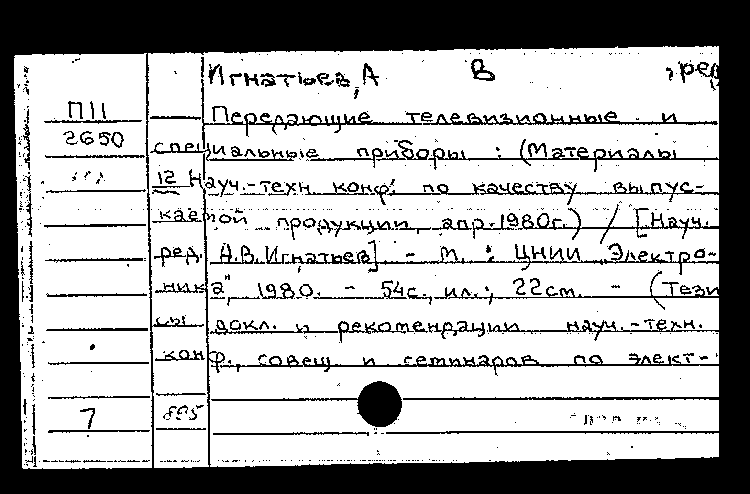 Игнатьев, А В , ред
П11 Передающие телевизионные и
2650 специальные приборы : (Материалы
12 Науч.-техн. конф. по качеству выпус-
каемой продукции, апр. 1980г.) / [Науч.
ред. А.В. Игнатьев]. - М. : ЦНИИ „Электро-
ника", 1980. - 54с., ил. ; 22см. - (Тези
сы докл. и рекомендации науч.-техн.
конф., совещ. и семинаров по элект-
7 895